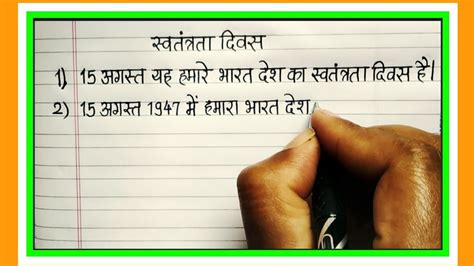 स्वतंत्रता दिवस
1) 15 अगस्त यह हमारे भारत देश का स्वतंत्रता दिवस है।
2) 15 अगस्त 1947 में हमारा भारत देश